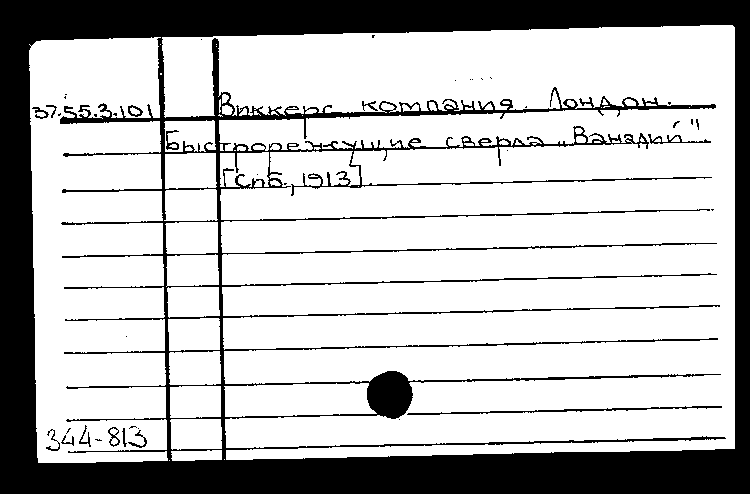 37.55.3.101 Виккерс компания. Лондон.
Быстрорежущие сверла „Ванадий".
[Спб., 1913].
344-813